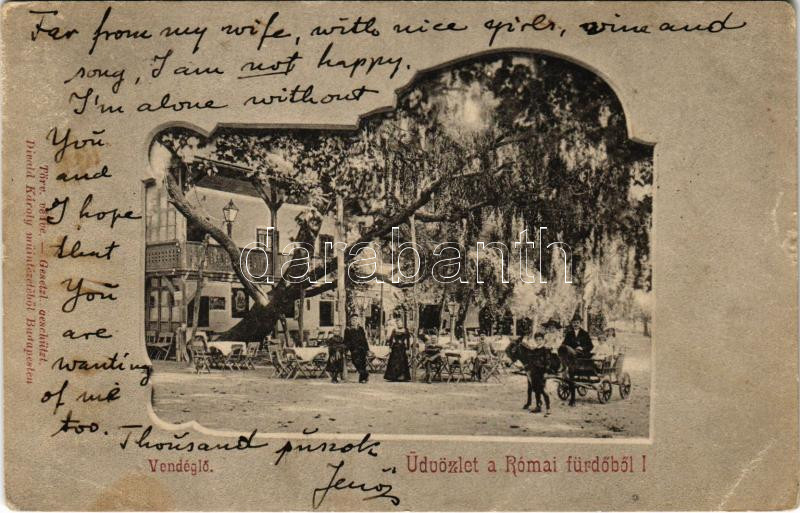 Far from my wife, with nice girls, wine and
song, I am not happy.
I'm alone without
You
and
I hope
that
You
are
wanting
of me
too. Thousand puszok
Jenő
Törv. védve. — Gesetzl. geschützt.
Divald Károly műintézetéből Budapesten
darabanth
Vendéglő.
Üdvözlet a Római fürdőből!